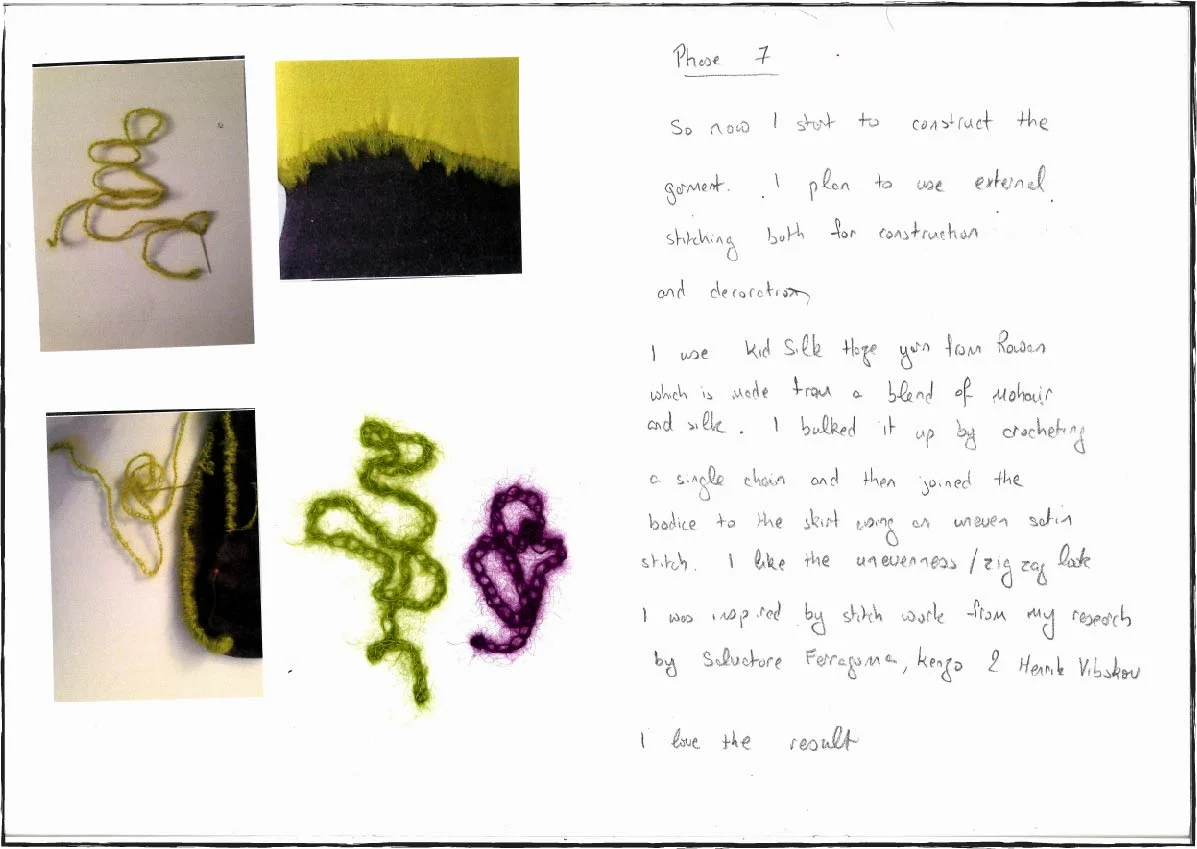 Phase 7
So now I start to construct the
garment. I plan to use external
stitching both for construction
and decoration
I use Kid Silk Haze yarn from Rowan
which is made from a blend of Mohair
and silk. I bulked it up by crocheting
a single chain and then joined the
bodice to the skirt using an uneven satin
stitch. I like the unevenness / zig zag look
I was inspired by stitch work from my research
by Salvatore Ferragamo, Kenzo & Henrik Vibskov
I love the result